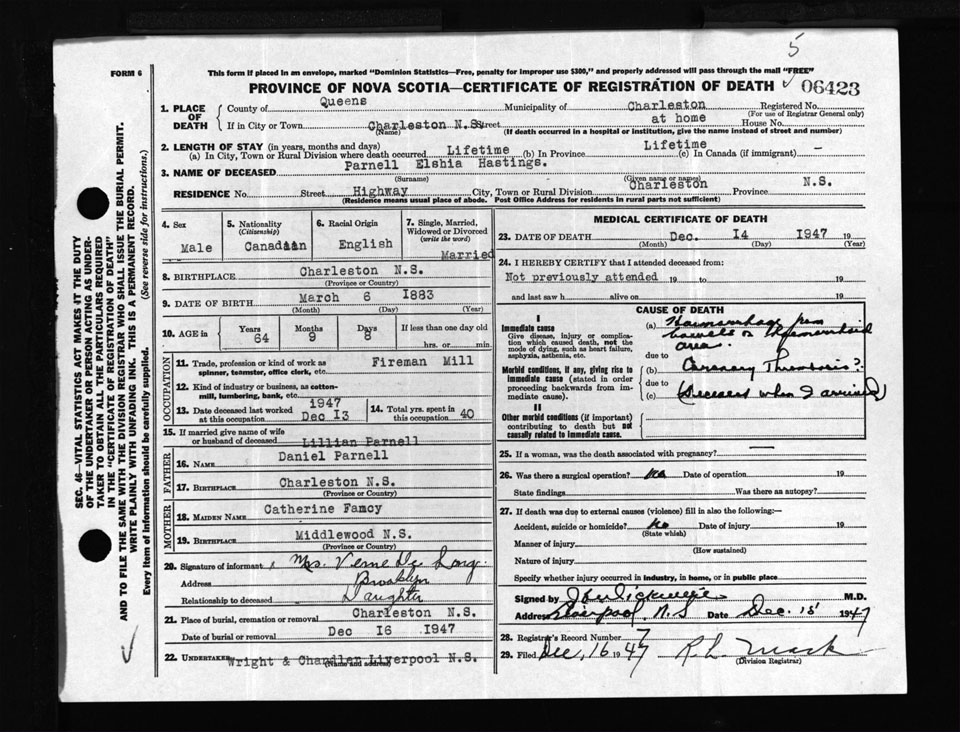 5
FORM 6
This form if placed in an envelope, marked "Dominion Statistics—Free, penalty for improper use $300," and properly addressed will pass through the mail "FREE"
PROVINCE OF NOVA SCOTIA—CERTIFICATE OF REGISTRATION OF DEATH
06423
1. PLACE OF DEATH
County of Queens Municipality of Charleston Registered No.
(For use of Registrar General only)
If in City or Town Charleston N.S. Street at home House No.
(Name) (If death occurred in a hospital or institution, give the name instead of street and number)
2. LENGTH OF STAY (in years, months and days)
(a) In City, Town or Rural Division where death occurred Lifetime (b) In Province Lifetime (c) In Canada (if immigrant) —
3. NAME OF DECEASED Parnell Elshia Hastings.
(Surname) (Given name or names)
RESIDENCE No. Street Highway City, Town or Rural Division Charleston Province N.S.
(Residence means usual place of abode. Post Office Address for residents in rural parts not sufficient)
4. Sex
Male
5. Nationality
(Citizenship)
Canadian
6. Racial Origin
English
7. Single, Married, Widowed or Divorced
(write the word)
Married
8. BIRTHPLACE Charleston N.S.
(Province or Country)
9. DATE OF BIRTH March 6 1883
(Month) (Day) (Year)
10. AGE in
Years Months Days If less than one day old
64 9 8 hrs. or min.
OCCUPATION
11. Trade, profession or kind of work as Fireman Mill
spinner, teamster, office clerk, etc.
12. Kind of industry or business, as cotton-
mill, lumbering, bank, etc.
13. Date deceased last worked 1947
at this occupation Dec 13
14. Total yrs. spent in
this occupation 40
15. If married give name of wife
or husband of deceased Lillian Parnell
FATHER
16. NAME Daniel Parnell
17. BIRTHPLACE Charleston N.S.
(Province or Country)
MOTHER
18. MAIDEN NAME Catherine Famcy
19. BIRTHPLACE Middlewood N.S.
(Province or Country)
20. Signature of informant Mrs. Verne De Long.
Address Brooklyn
Relationship to deceased Daughter
21. Place of burial, cremation or removal Charleston N.S.
Date of burial or removal Dec 16 1947
22. UNDERTAKER Wright & Chandler Liverpool N.S.
(Name and address)
MEDICAL CERTIFICATE OF DEATH
23. DATE OF DEATH Dec. 14 1947 19
(Month) (Day) (Year)
24. I HEREBY CERTIFY that I attended deceased from:
Not previously attended 19 to 19
and last saw h alive on 19
CAUSE OF DEATH
I
Immediate cause
Give disease, injury or complica-
tion which caused death, not the
mode of dying, such as heart failure,
asphyxia, asthenia, etc.
(a) Haemorrhage from
bowels or Haemorrhoid
area.
due to
Morbid conditions, if any, giving rise to
immediate cause (stated in order
proceeding backwards from im-
mediate cause).
(b) Coronary Thrombosis?
due to
(c) (Deceased when I arrived)
II
Other morbid conditions (if important)
contributing to death but not
causally related to immediate cause.
25. If a woman, was the death associated with pregnancy? —
26. Was there a surgical operation? No Date of operation 19
State findings Was there an autopsy?
27. If death was due to external causes (violence) fill in also the following:—
Accident, suicide or homicide? No Date of injury 19
(State which)
Manner of injury
(How sustained)
Nature of injury
Specify whether injury occurred in industry, in home, or in public place
Signed by M.D.
Address Liverpool, N.S Date Dec. 15 1947
28. Registrar's Record Number 7
29. Filed Dec, 16 1947 R L Mack
(Division Registrar)
SEC. 46—VITAL STATISTICS ACT MAKES IT THE DUTY
OF THE UNDERTAKER OR PERSON ACTING AS UNDER-
TAKER TO OBTAIN ALL THE PARTICULARS REQUIRED
IN THE "CERTIFICATE OF REGISTRATION OF DEATH"
AND TO FILE THE SAME WITH THE DIVISION REGISTRAR WHO SHALL ISSUE THE BURIAL PERMIT.
WRITE PLAINLY WITH UNFADING INK. THIS IS A PERMANENT RECORD.
Every item of information should be carefully supplied. (See reverse side for instructions.)